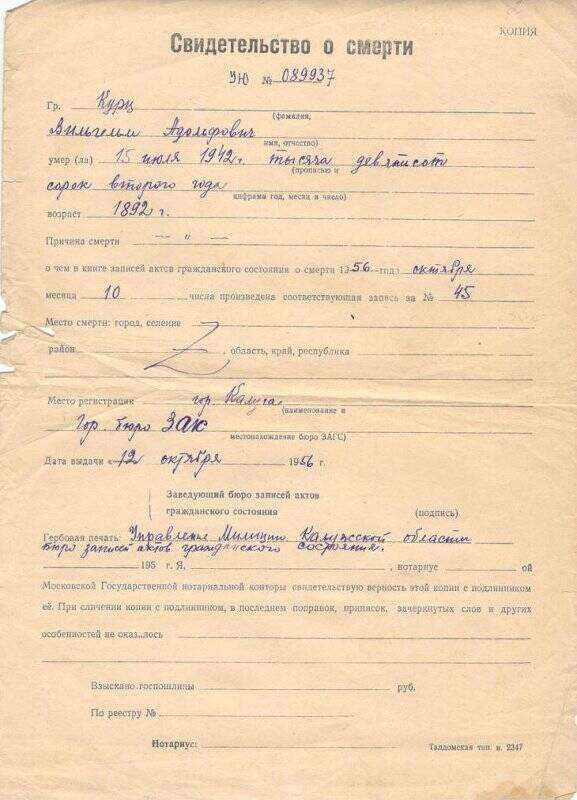 КОПИЯ
Свидетельство о смерти
УЮ № 089937
Гр. Курц
(фамилия,
Вильгельм Адольфович
имя, отчество)
умер (ла) 15 июля 1942 г. тысяча девятисот
(прописью и
сорок второго года
цифрами год, месяц и число)
возраст 1892 г.
Причина смерти — „ —
о чем в книге записей актов гражданского состояния о смерти 1956 года октября
месяца 10 числа произведена соответствующая запись за № 45
Место смерти: город, селение
район , область, край, республика
Место регистрации гор. Калуга
(наименование и
Гор. бюро ЗАК
местонахождение бюро ЗАГС)
Дата выдачи « 12 октября 1956 г.
Заведующий бюро записей актов
гражданского состояния (подпись)
Гербовая печать: Управленье Милиции Калужской области
бюро записей актов гражданского состояние.
195 г. Я, , нотариус ой
Московской Государственной нотариальной конторы свидетельствую верность этой копии с подлинником
её. При сличении копии с подлинником, в последнем поправок, приписок, зачеркнутых слов и других
особенностей не оказ..лось
Взыскано госпошлины руб.
По реестру №
Нотариус: Талдомская тип. и. 2347